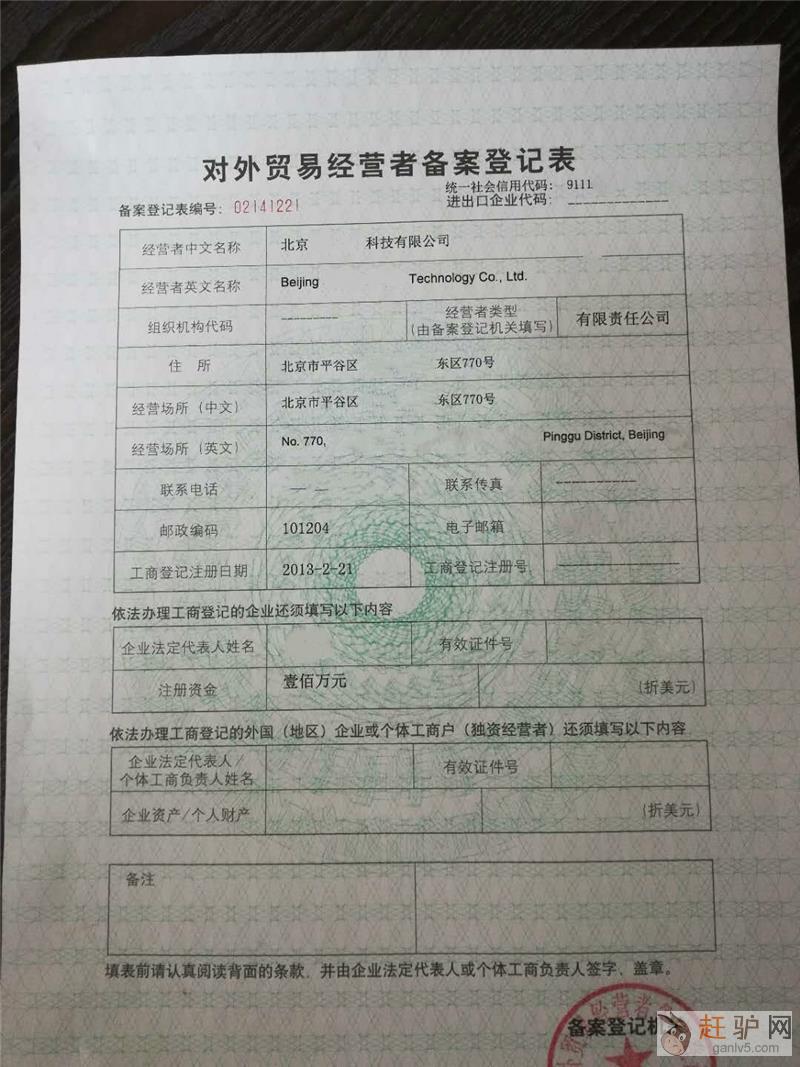 对外贸易经营者备案登记表
统一社会信用代码: 9111
备案登记表编号: 02141221
进出口企业代码: _____________
经营者中文名称 北京 科技有限公司
经营者英文名称 Beijing Technology Co., Ltd.
组织机构代码 --------- 经营者类型 有限责任公司
(由备案登记机关填写)
住 所 北京市平谷区 东区770号
经营场所 (中文) 北京市平谷区 东区770号
经营场所 (英文) No. 770, Pinggu District, Beijing
联系电话 — — 联系传真 ----------
邮政编码 101204 电子邮箱
工商登记注册日期 2013-2-21 工商登记注册号 ---------------
依法办理工商登记的企业还须填写以下内容
企业法定代表人姓名 有效证件号
注册资金 壹佰万元 (折美元)
依法办理工商登记的外国 (地区) 企业或个体工商户 (独资经营者) 还须填写以下内容
企业法定代表人/
个体工商负责人姓名 有效证件号
企业资产/个人财产 (折美元)
备注
填表前请认真阅读背面的条款, 并由企业法定代表人或个体工商负责人签字、盖章。
备案登记机关
赶驴网
ganlv5.com